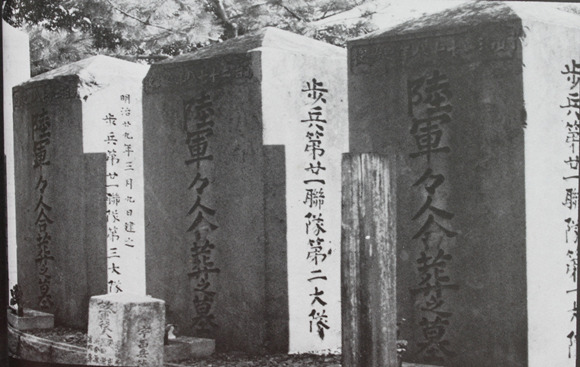 歩兵第廿一聯隊第一大隊
陸軍々人合葬之墓
歩兵第廿一聯隊第二大隊
陸軍々人合葬之墓
明治廿九年三月九日建之
歩兵第廿一聯隊第三大隊
陸軍々人合葬之墓